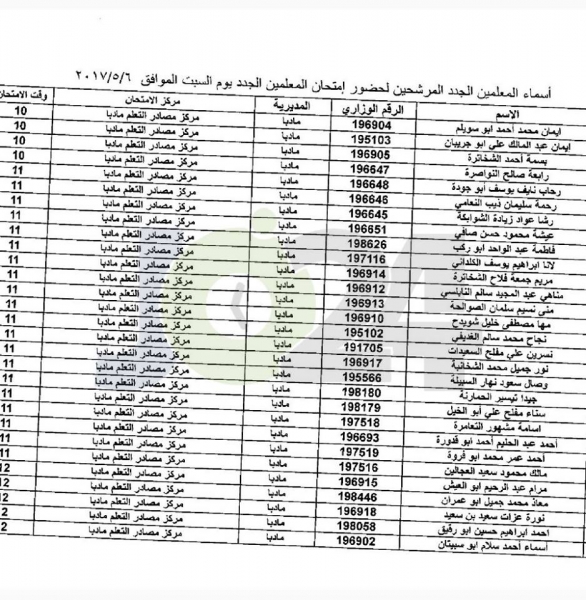 أسماء المعلمين الجدد المرشحين لحضور إمتحان المعلمين الجدد يوم السبت الموافق ٢٠١٧/٥/٦
الاسم الرقم الوزاري المديرية مركز الامتحان وقت الامتحان
ايمان محمد أحمد ابو سويلم 196904 مادبا مركز مصادر التعلم مادبا 10
ايمان عبد المالك علي ابو جريبان 195103 مادبا مركز مصادر التعلم مادبا 10
بسمة أحمد الشخاترة 196905 مادبا مركز مصادر التعلم مادبا 10
رابعة صالح النواصرة 196647 مادبا مركز مصادر التعلم مادبا 10
رحاب نايف يوسف أبو جودة 196648 مادبا مركز مصادر التعلم مادبا 11
رحمة سليمان ذيب النعامي 196646 مادبا مركز مصادر التعلم مادبا 11
رشا عواد زيادة الشوابكة 196645 مادبا مركز مصادر التعلم مادبا 11
عيشة محمود حسن صافي 196651 مادبا مركز مصادر التعلم مادبا 11
فاطمة عبد الواحد ابو ركب 198626 مادبا مركز مصادر التعلم مادبا 11
لانا ابراهيم يوسف الكلداني 197116 مادبا مركز مصادر التعلم مادبا 11
مريم جمعة فلاح الشخاترة 196914 مادبا مركز مصادر التعلم مادبا 11
مناهي عبد المجيد سالم النابلسي 196912 مادبا مركز مصادر التعلم مادبا 11
منى نسيم سلمان الصوالحة 196913 مادبا مركز مصادر التعلم مادبا 11
مها مصطفى خليل شويدح 196910 مادبا مركز مصادر التعلم مادبا 11
نجاح محمد سالم الغديفي 195102 مادبا مركز مصادر التعلم مادبا 11
نسرين علي مفلح السعيدات 191705 مادبا مركز مصادر التعلم مادبا 11
نور جميل محمد الشخانبة 196917 مادبا مركز مصادر التعلم مادبا 11
وصال سعود نهار السبيلة 195566 مادبا مركز مصادر التعلم مادبا 11
جيدا تيسير الحمارنة 198180 مادبا مركز مصادر التعلم مادبا 11
سناء مفلح علي أبو الخيل 198179 مادبا مركز مصادر التعلم مادبا 11
اسامة مشهور التعامرة 197518 مادبا مركز مصادر التعلم مادبا 11
أحمد عبد الحليم أحمد ابو قدورة 196693 مادبا مركز مصادر التعلم مادبا 11
أحمد عمر محمد ابو فروة 197519 مادبا مركز مصادر التعلم مادبا 11
مالك محمود سعيد العجالين 197516 مادبا مركز مصادر التعلم مادبا 11
مرام عبد الرحيم ابو العيش 196915 مادبا مركز مصادر التعلم مادبا 12
معاذ محمد جميل ابو عمران 198446 مادبا مركز مصادر التعلم مادبا 12
نورة عزات سعيد بن سعيد 196918 مادبا مركز مصادر التعلم مادبا 12
احمد ابراهيم حسين ابو رقيق 198058 مادبا مركز مصادر التعلم مادبا 2
أسماء أحمد سلام ابو سبيتان 196902 مادبا مركز مصادر التعلم مادبا 2